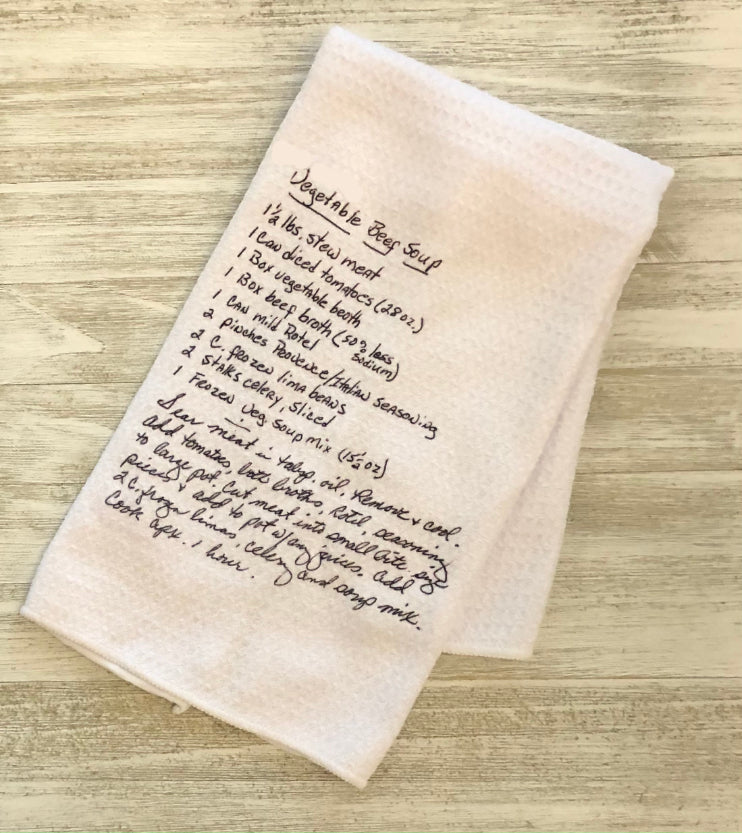 Vegetable Beef Soup
1 1/2 lbs. stew meat
1 Can diced tomatoes (28 oz.)
1 Box vegetable broth
1 Box beef broth (50% less sodium)
1 Can mild Rotel
2 pinches Provence/Italian Seasoning
2 c. frozen lima beans
2 Stalks celery, sliced
1 Frozen Veg Soup mix (15 1/2 oz)
Sear meat in tbsp. oil. Remove & cool.
add tomatoes, both broths, Rotel, seasoning
to large pot. Cut meat into small bite size
pieces & add to pot w/any juices. add
2 c. frozen limas, celery and soup mix.
Cook apx. 1 hour.